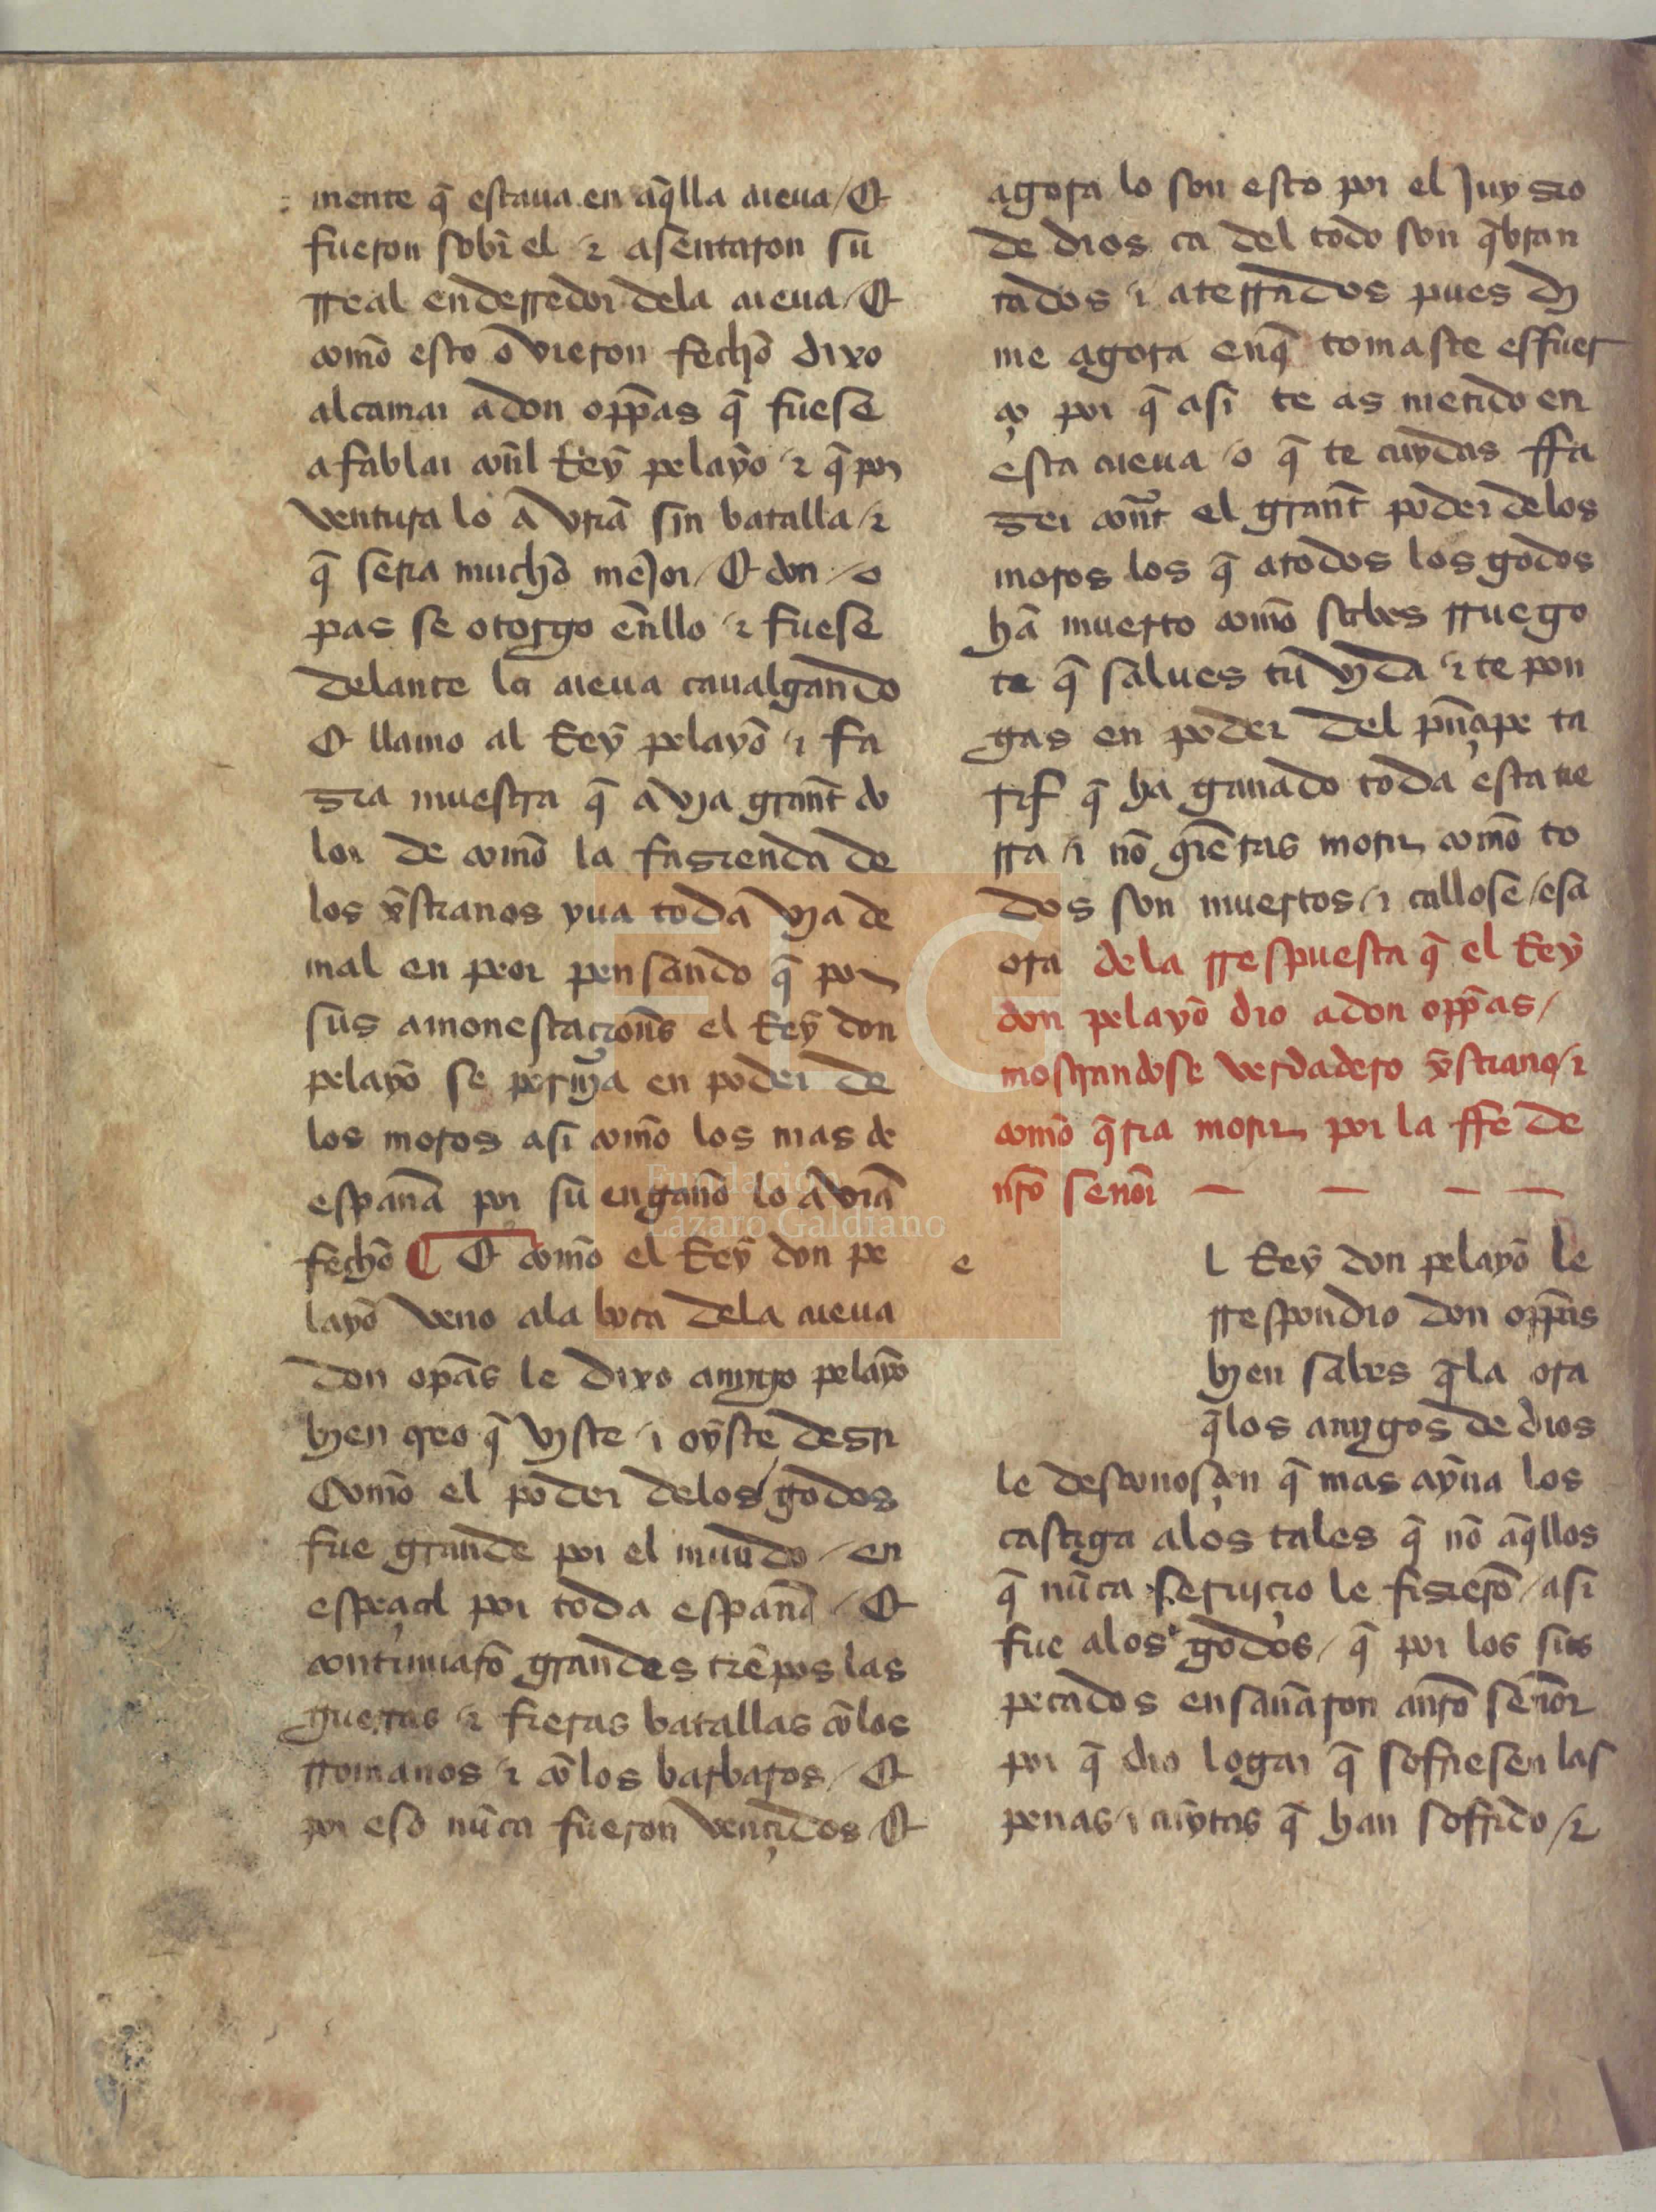 mente q̃ estaua en aq̃lla cueua / Et
fueron sobr̃el ⁊ asentaron su
rreal enderredor dela cueua / Et
com̃o esto ovieron fecho dixo
alcamar adon opp̃as q̃ fuese
afablar con̄l Rey pelayo ⁊ q̃ por
ventura lo avriã sin batalla / ⁊
q̃ seria mucho mejor / Et don / o
pas se otorgo en̄llo ⁊ fuese
delante la cueua caualgando
Et llamo al Rey pelayo ⁊ fa
zia muestra q̃ avia grant do
lor de com̃o la fazienda de
los xp̃stianos yua toda via de
mal en peor pensando q̃ por
sus amonestacion̄s el Rey don
pelayo se pornia en poder de
los moros asi com̃o los mas de
españa por su engaño lo avriã
fecho ¶ Et com̃o el Rey don pe
layo veno ala boca dela cueua
don opãs le dixo amygo pelayo
byen creo q̃ vyste / ⁊ oyste dezir
Com̃o el poder delos / godos
fue grande por el mundo / en
espeçial por toda españa / Et
continuarõ grandes tiẽpos las
guerras ⁊ fieras batallas cõ los
rromanos ⁊ cõ los barbaros / Et
por eso nũca fueron vençidos Et
agora lo son esto por el Juyzio
de dios ca del todo son q̃bran
tados ⁊ aterrados pues dy
me agora enq̃ tomaste esfuer
ço por q̃ asi te as metido en
esta cueua / o q̃ te cuydas ffa
zer cont̃ el grant poder delos
moros los q̃ atodos los godos
hã muerto com̃o sabes rruego
te q̃ salues tu vyda ⁊ te pon
gas en poder del prinçipe ta
rif q̃ ha ganado toda esta tie
rra ⁊ nõ q̃ẽras morir com̃o to
dos son muertos / ⁊ callose / esa
ora dela rrespuesta q̃ el Rey
don pelayo dio adon opp̃as /
mostrandose verdadero xp̃stiano / ⁊
com̃o q̃ria morir por la ffe de
nr̃o señor — — — —
e L Rey don pelayo le
rrespondio don opp̃as
byen sabes q̃la ora
q̃los amygos de dios
le desconosçen q̃ mas ayna los
castiga alos tales q̃ nõ aq̃llos
q̃ nũca seruiçio le fizierõ / asi
fue alos godos / q̃ por los sus
pecados ensañaron anr̃o señor
por q̃ dio logar q̃ sofriesen las
penas / ⁊ cuytas q̃ han sofrido / ⁊
Fundación
Lázaro Galdiano